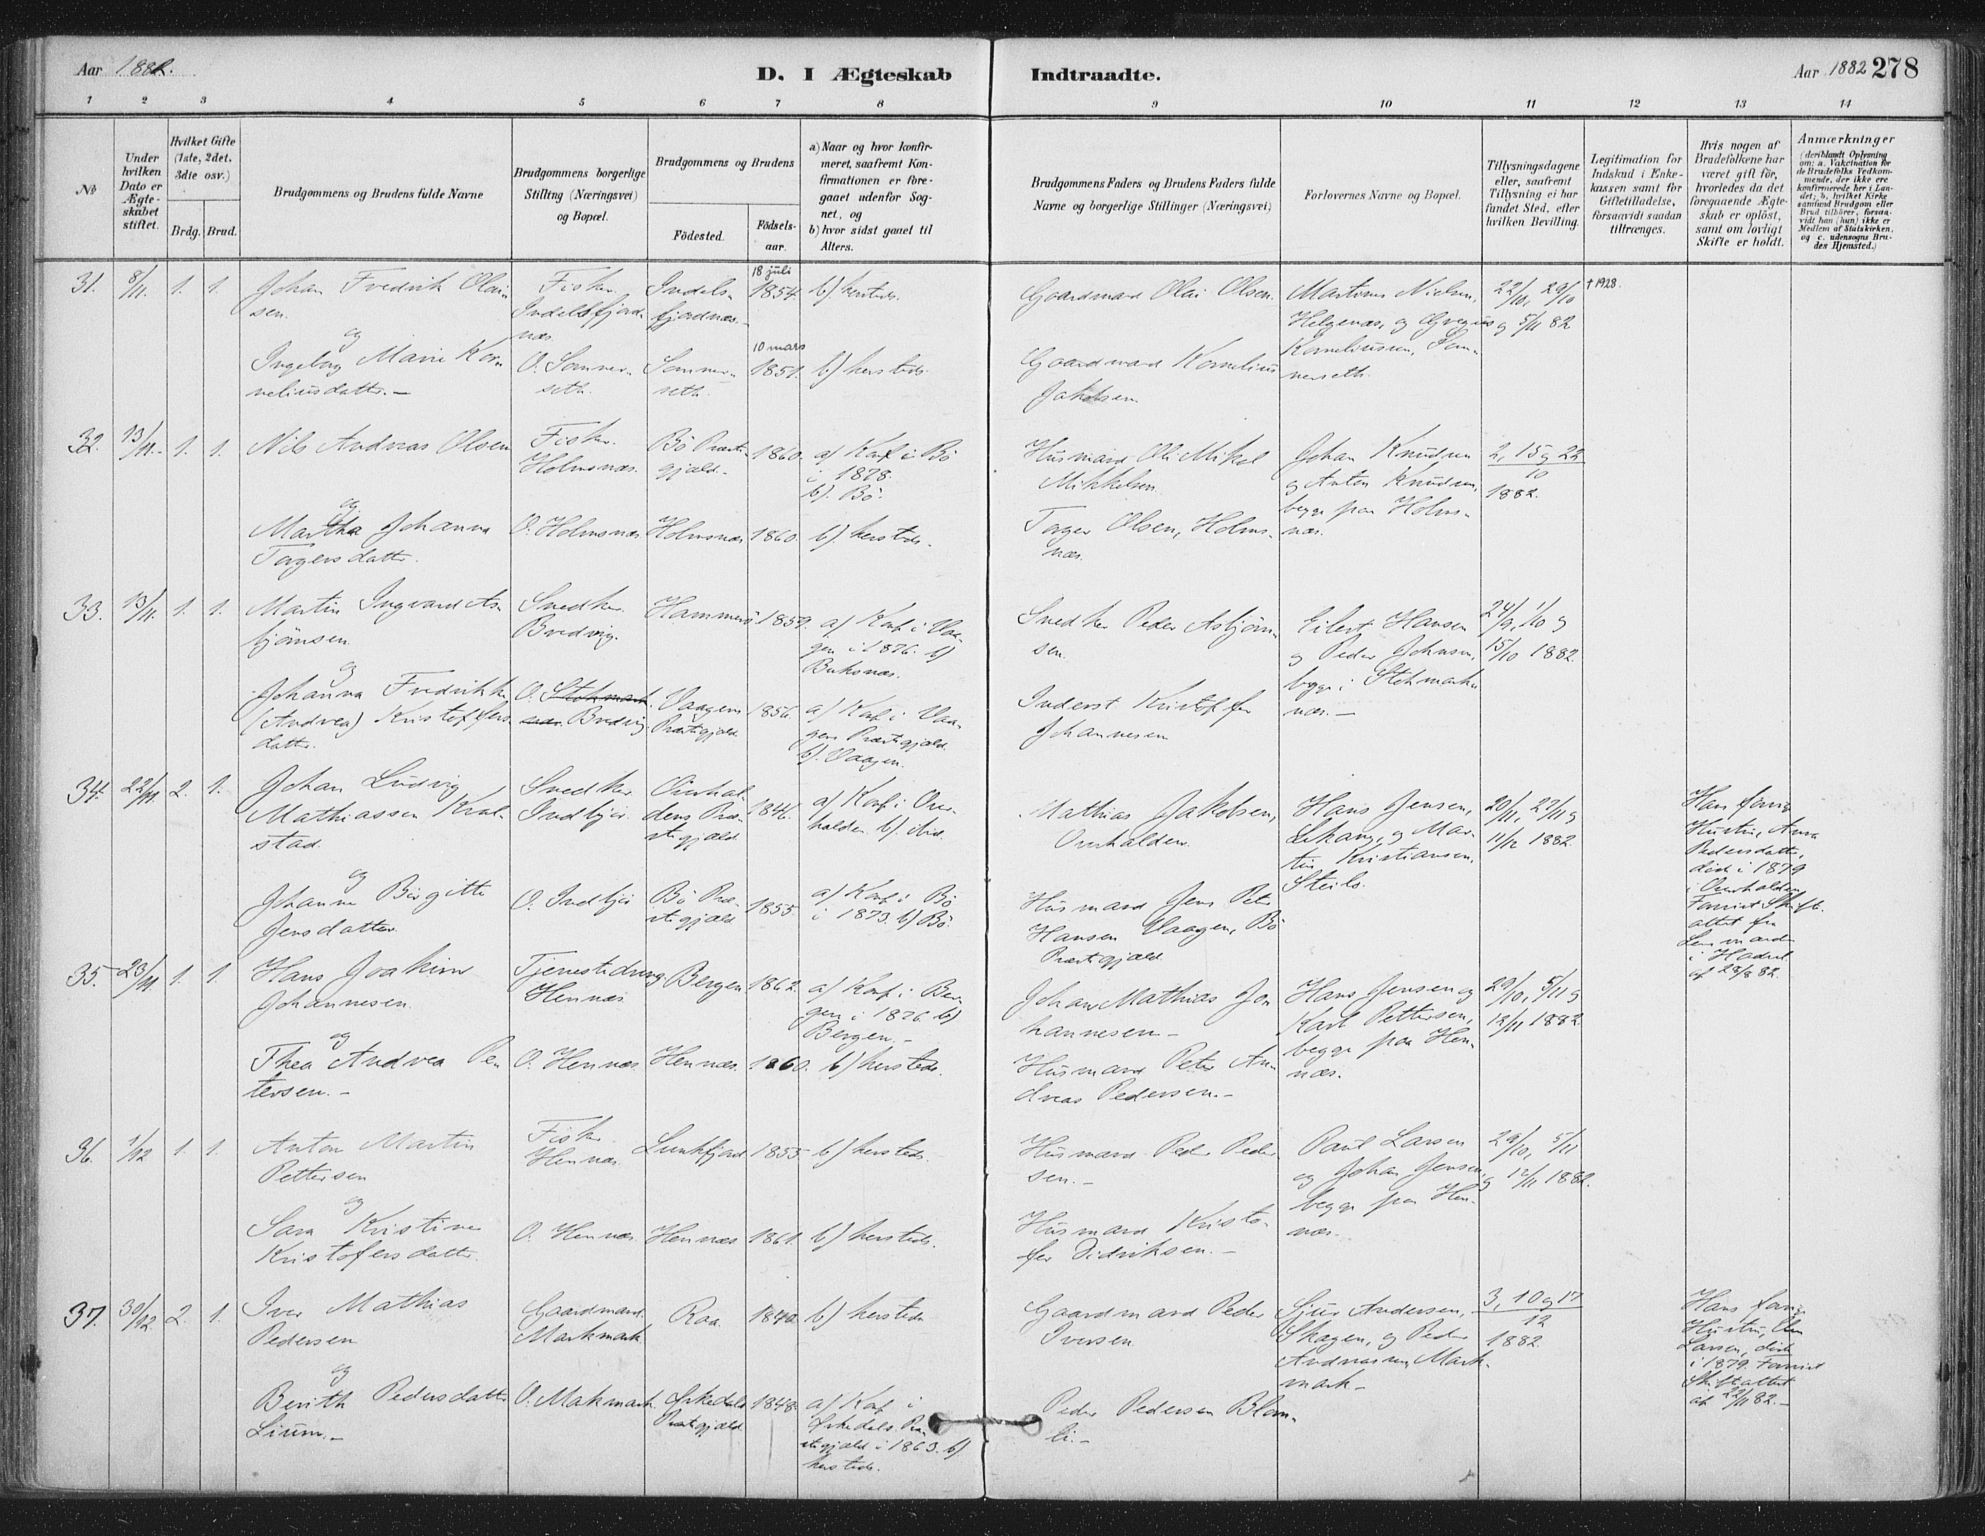 Aar 1882.
D. I Ægteskab
Indtraadte.
Aar 1882 278
1 2 3 4 5 6 7 8 9 10 11 12 13 14
No
Under
hvilken
Dato er
Ægte-
skabet
stiftet.
Hvilket Gifte
(1ste, 2det.
3die osv.)
Brdg. Brud.
Brudgommens og Brudens fulde Navne
Brudgommens borgerlige
Stilling (Næringsvei)
og Bopæl.
Brudgommens og Brudens
Födested.
Födsels-
aar.
a) Naar og hvor konfir-
meret, saafremt Kon-
firmationen er fore-
gaaet udenfor Sog-
net, og
b) hvor sidst gaaet til
Alters.
Brudgommens Faders og Brudens Faders fulde
Navne og borgerlige Stillinger (Næringsvei)
Forlovernes Navne og Bopæl.
Tillysningsdagene
eller, saafremt
Tillysning ei har
fundet Sted, efter
hvilken Bevilling.
Legitimation for
Indskud i Enke-
kassen samt for
Giftetilladelse,
forsaavidt saadan
tiltrænges.
Hvis nogen af
Brudefolkene har
været gift för,
hvorledes da det
foregaaende Ægte-
skab er oplöst,
samt om lovligt
Skifte er holdt.
Anmærkninger
(deriblandt Oplysning
om: a. Vakcination for
de Brudefolks Vedkom-
mende, der ikke ere
konfirmerede her i Lan-
det; b. hvilket Kirke
samfund Brudgom eller
Brud tilhörer, forsaa-
vidt han (hun) ikke er
Medlem af Statskirken,
og c. udensogns Bru-
des Hjemsted.)
31. 8/11. 1. 1.
Johan Fredrik Olai-
sen.
og
Ingeborg Marie Kor-
neliusdatter. —
Fisker
Indelsfjord-
næs.
O. Sommer-
seth.
Indels-
fjordnæs.
Sommer-
seth.
18 juli
1854.
10 mars
1851.
b) hersteds.
b.) hersteds.
Gaardmand Olai Olsen.
Gaardmand Kornelius
Jakobsen.
Martinus Nielsen,
Helgenæs, og Gregius
Korneliussen, Som-
merseth.
22/10, 29/10
og 5/11 82
† 1928.
32. 13/11. 1. 1.
Nils Andreas Olsen
og
Martha Johanna
Tagersdatter.
Fisker.
Holmsnæs.
O. Holmsnæs.
Bö Præste-
gjæld.
Holmsnæs
1860.
1860.
a) Konf. i Bö
i 1878.
b). Bö.
b) hersteds.
Husmand Ole Mikal
Mikkelsen.
Tager Olsen, Holms-
næs.
Johan Knudsen
og Anton Knudsen,
begge paa Holms-
næs.
2, 15 og 22
10
1882.
33. 13/11. 1. 1.
Martin Ingvard As-
björnsen
og
Johanna Fredrikke
(Andrea) Kristoffers-
datter.
Snedker.
Bredvig.
O. Stokmark-
næs Bredvig
Hammerö
Vaagens
Præstegjæld
1859.
1856.
a) Konf. i Vaa-
gen i 1876. b)
Buksnæs.
a) Konf. i Vaa-
gens Præstegjæld.
b). Vaagen.
Snedker Peder Asbjörn-
sen.
Inderst Kristoffer
Johannesen
Eilert Hansen
og Peder Johnsen,
begge i Stokmarks-
næs. —
24/9, 1/10 og
15/10 1882.
34. 22/11. 2. 1.
Johan Ludvig
Mathiassen Kval-
stad.
og
Johanna Birgitte
Jensdatter.
Snedker
Indbjör.
O. Indbjör
Overhal-
dens Præ-
stegjæld
Bö Præ-
stegjæld
1846.
1855.
a) Konf. i Over-
halden. b). ibid.
a) Konf. i Bö
i 1873. b) Bö.
Mathias Jakobsen,
Overhalden.
Husmand Jens Peter
Hansen Vaagen, Bö
Præstegjæld
Hans Jensen,
Lekang, og Mar-
tin Kristiansen,
Steils.
20/11, 27/11 og
11/12 1882.
Hans forrige
Hustru, Anna
Pedersdatter,
död i 1879
i Overhalden.
Forevist Skifte-
attest fra
Lensmanden
i Hadsel
af 28/8 82.
35. 23/11. 1. 1.
Hans Joakim
Johannesen
og
Thea Andrea Pe-
tersen. —
Tjenestedreng
Hennæs
O. Hennæs.
Bergen
Hennæs.
1862.
1860.
a) Konf. i Ber-
gen i 1876. b)
Bergen. —
b) hersteds.
Johan Mathias Jo-
hannesen —
Husmand Peter An-
dreas Pedersen. —
Hans Jensen og
Karl Pettersen,
begge paa Hen-
næs.
29/10, 5/11 og
12/11 1882.
36. 1/12 1. 1.
Anton Martin
Pettersen
og
Sara Kristine
Kristofersdatter.
Fisker
Hennæs.
O. Hennæs.
Lunkfjord
Hennæs
1855.
1861.
b) hersteds.
b) hersteds.
Husmand Peder Peder-
sen. —
Husmand Kristo-
fer Didriksen. —
Paul Larsen
og Johan Jensen,
begge paa Hen-
næs.
29/10, 5/11
og 12/11 1882.
37. 30/12. 2. 1.
Iver Mathias
Pedersen
og
Berith Pedersdatter
Lium. —
Gaardmand.
Markmark
O. Makmark
Roa.
Örkedals
Præstegjæld
1840.
1848.
b) hersteds
a) Konf. i
Örkedals Præ-
stegjæld i 1863. b)
hersteds.
Gaardmand Peder
Iversen
Peder Pedersen Blom-
li. —
Sjur Andersen,
Skagen, og Peder
Andreassen Mark-
mark —
3, 10 og 17
12
1882.
Hans forrige
Hustru,
Larsen, död
i 1879. Forevist
Skifteattest
af 22/11 82. —